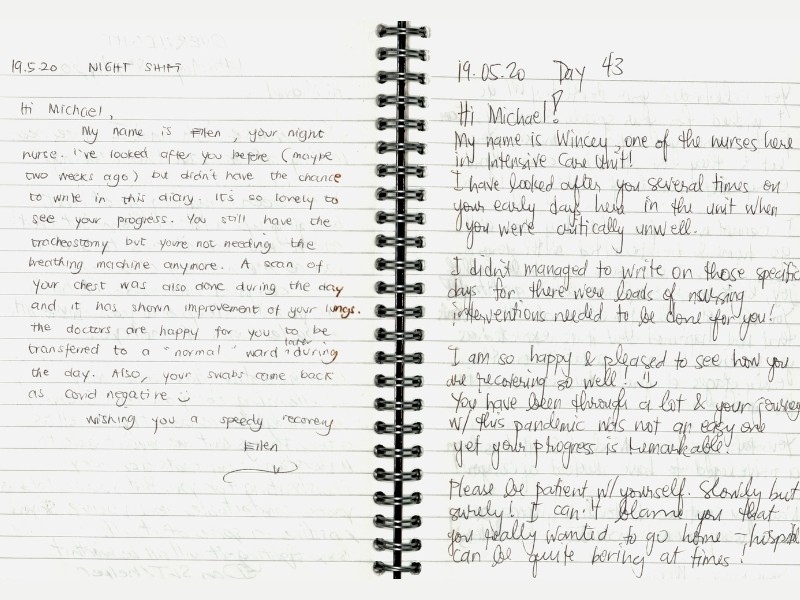 19.5.20 NIGHT SHIFT
Hi Michael,
My name is Ellen, your night
nurse. I've looked after you before (maybe
two weeks ago) but didn't have the chance
to write in this diary. It's so lovely to
see your progress. You still have the
tracheostomy but youre not needing the
breathing machine anymore. A scan of
your chest was also done during the day
and it has shown improvement of your lungs.
the doctors are happy for you to be
transferred to a "normal" ward later during
the day. Also, your swabs came back
as covid negative ☺
wishing you a speedy recovery
Ellen
19.05.20 Day 43
Hi Michael!
My name is Wincey, one of the nurses here
in Intensive Care Unit!
I have looked after you several times on
your early days here in the unit when
you were critically unwell.
I didn't managed to write on those specific
days for there were loads of nursing
interventions needed to be done for you!
I am so happy & pleased to see how you
are recovering so well! ☺
You have been through a lot & your journey
w/ this pandemic was not an easy one
yet your progress is remarkable!
Please be patient w/ yourself. Slowly but
surely! I can't blame you that
you really wanted to go home - hospital
can be quite boring at times!